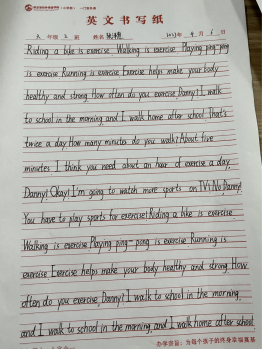 英文书写纸
六 年级 2 班 姓名 2023年 4月 1日
Riding a bike is exercise Walking is exercise Playing ping-pong
is exercise Running is exercise Exercise helps make your body
healthy and strong. How often do you exercise, Danny? I walk
to school in the morning, and I walk home after school. That's
twice a day. How many minutes do you walk? About five
minutes I think you need about an hour of exercise a day,
Danny! Okay! I'm going to watch more sports on TV! No, Danny!
You have to play sports for exercise! Riding a bike is exercise
Walking is exercise Playing ping-pong is exercise Running is
exercise Exercise helps make your body healthy and strong. How
often do you exercise, Danny? I walk to school in the morning,
and I walk to school in the morning, and I walk home after school.
办学宗旨：为每个孩子的终身幸福奠基